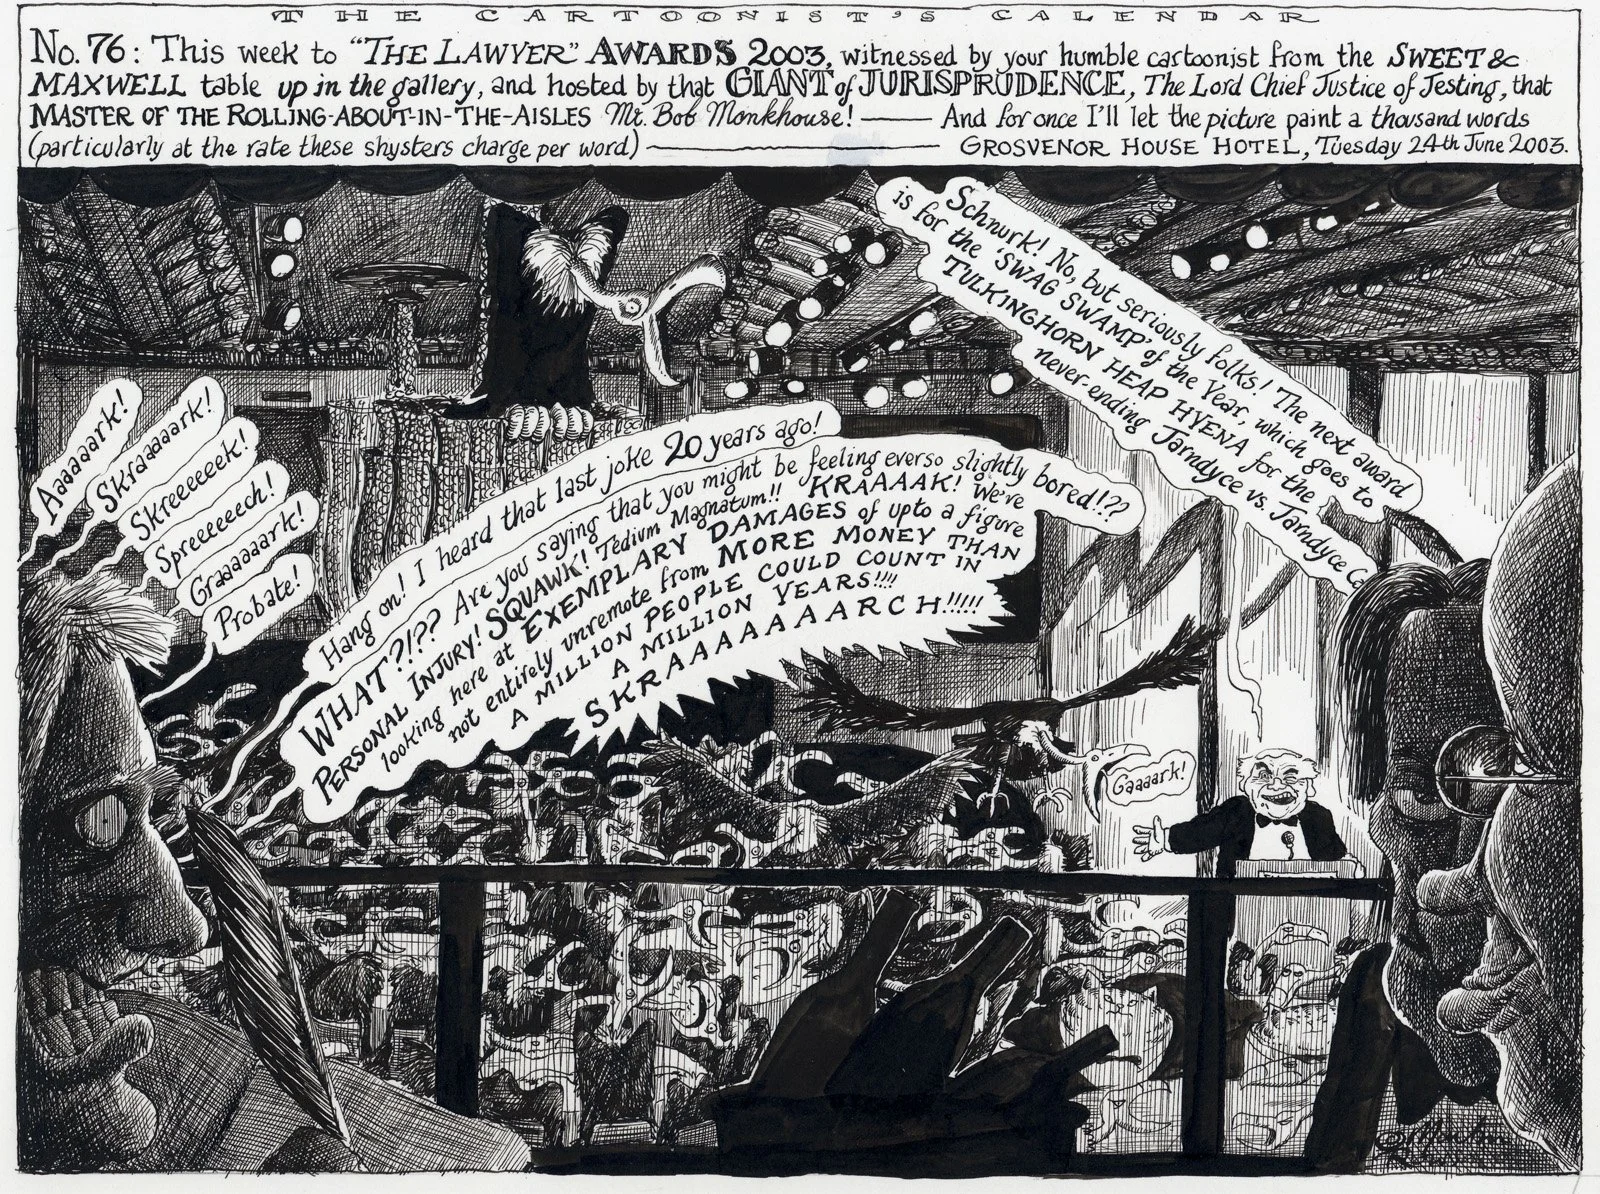 THE CARTOONIST'S CALENDAR
No. 76: This week to "THE LAWYER" AWARDS 2003, witnessed by your humble cartoonist from the SWEET &
MAXWELL table up in the gallery, and hosted by that GIANT of JURISPRUDENCE, The Lord Chief Justice of Jesting, that
MASTER OF THE ROLLING-ABOUT-IN-THE-AISLES Mr. Bob Monkhouse! — And for once I'll let the picture paint a thousand words
(particularly at the rate these shysters charge per word) — GROSVENOR HOUSE HOTEL, Tuesday 24th June 2003.
Schnurk! No, but seriously folks! The next award
is for the 'SWAG SWAMP' of the Year, which goes to
TULKINGHORN HEAP HYENA for the
never-ending Jarndyce vs. Jarndyce Ca
Aaaaaark!
Skraaaaark!
Skreeeeeek!
Spreeeeeech!
Graaaaaark!
Probate!
Hang on! I heard that last joke 20 years ago!
WHAT?!?? Are you saying that you might be feeling everso slightly bored!??
PERSONAL INJURY! SQUAWK! Tedium Magnatum!! KRAAAAK! We've
looking here at EXEMPLARY DAMAGES of upto a figure
not entirely unremote from MORE MONEY THAN
A MILLION PEOPLE COULD COUNT IN
A MILLION YEARS!!!!
SKRAAAAAAAARCH!!!!!
Gaaaark!